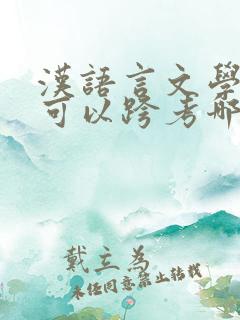 漢語言文學
可以跨考哪
戴立為
未經同意禁止轉載